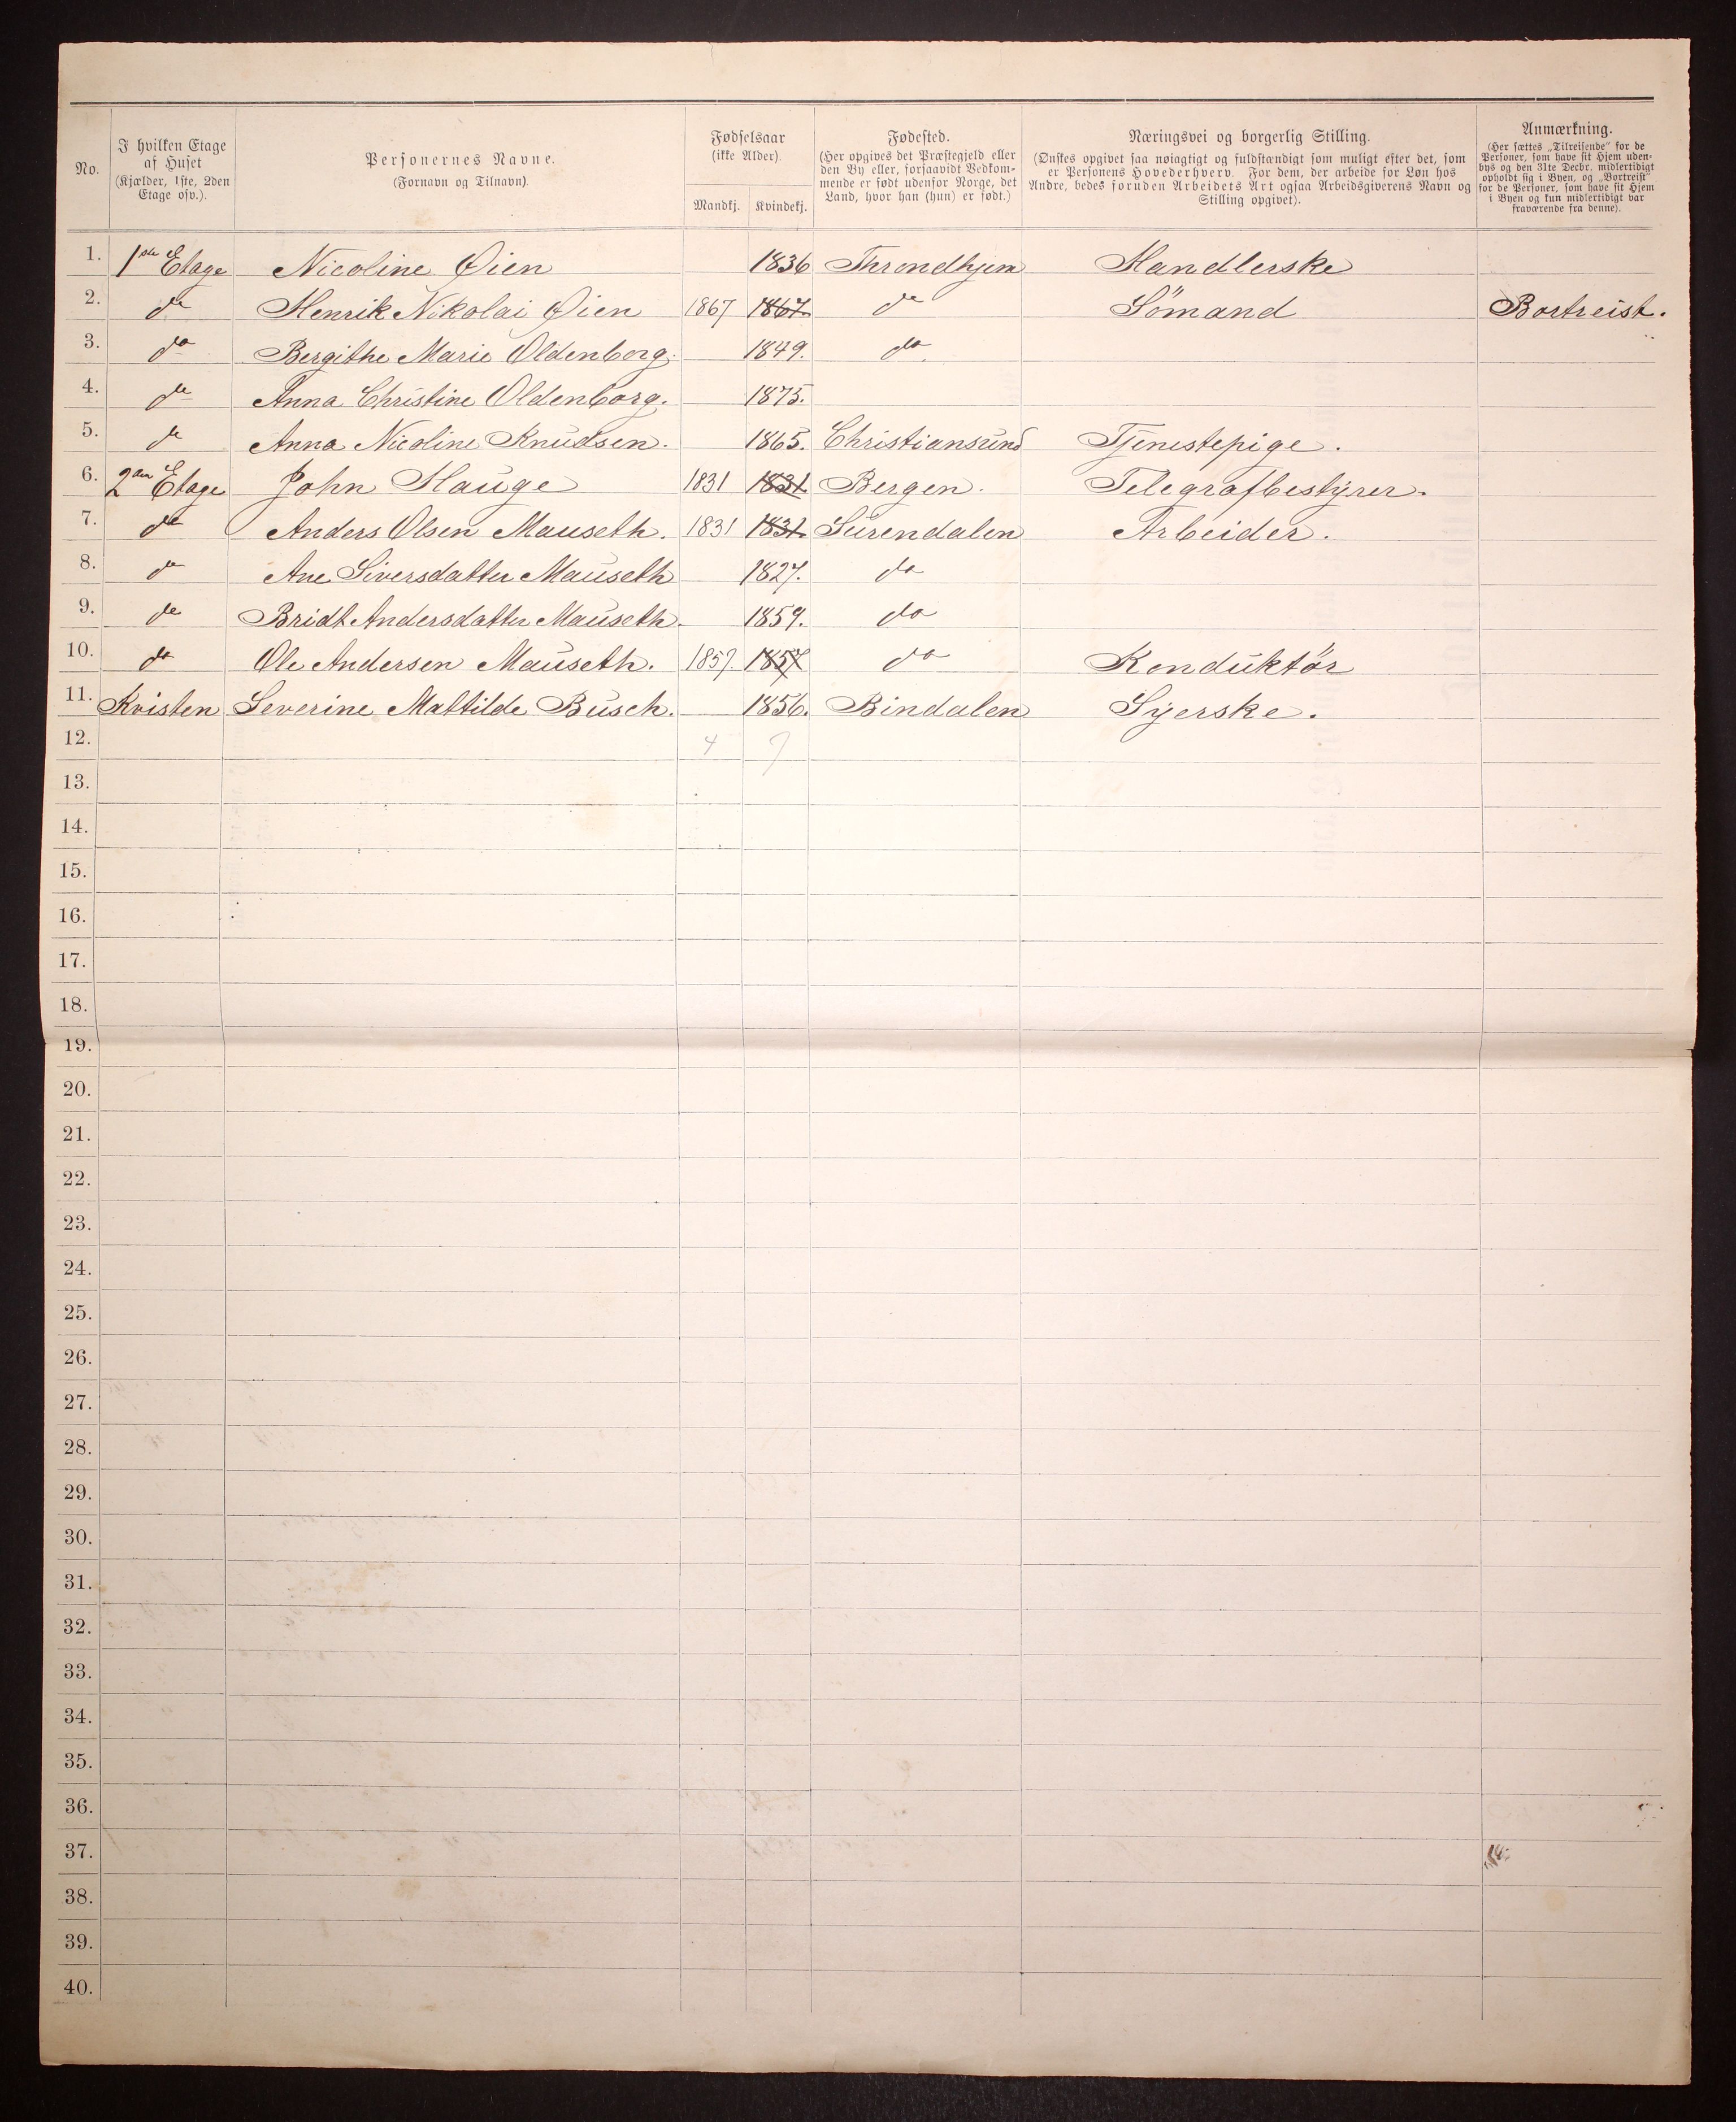 No.
I hvilken Etage
af Huset
(Kjælder, 1ste, 2den
Etage osv.).
Personernes Navne.
(Fornavn og Tilnavn).
Fødselsaar
(ikke Alder).
Mandkj. Kvindekj.
Fødested.
(Her opgives det Præstegjeld eller
den By eller, forsaavidt Vedkom-
mende er født udenfor Norge, det
Land, hvor han (hun) er født.)
Næringsvei og borgerlig Stilling.
(Ønskes opgivet saa nøiagtigt og fuldstændigt som muligt efter det, som
er Personens Hovederhverv. For dem, der arbeide for Løn hos
Andre, bedes foruden Arbeidets Art ogsaa Arbeidsgiverens Navn og
Stilling opgivet).
Anmærkning.
(Her sættes „Tilreisende" for de
Personer, som have sit Hjem uden-
bys og den 31te Decbr. midlertidigt
opholdt sig i Byen, og „Bortreist"
for de Personer, som have sit Hjem
i Byen og kun midlertidigt var
fraværende fra denne).
1. 1ste Etage Nicoline Øien 1836 Throndhjem Handlerske
2. do Henrik Nikolai Øien 1867 1867. do Sömand Bortreist.
3. do Bergithe Marie Oldenborg. 1849. do
4. do Anna Christine Oldenborg. 1875.
5. do Anna Nicoline Knudsen. 1865. Christiansund Tjenestepige.
6. 2den Etage John Hauge 1831 1831. Bergen. Telegrafbestyrer.
7. do Anders Olsen Mauseth. 1831 1831. Surendalen Arbeider.
8. do Ane Siversdatter Mauseth 1827. do
9. do Bridt Andersdatter Mauseth. 1859. do
10. do Ole Andersen Mauseth. 1857. 1857 do Konduktör
11. Kvisten Severine Mattilde Busch. 1856. Bindalen Syerske.
12. 4 7
13.
14.
15.
16.
17.
18.
19.
20.
21.
22.
23.
24.
25.
26.
27.
28.
29.
30.
31.
32.
33.
34.
35.
36.
37.
38.
39.
40.